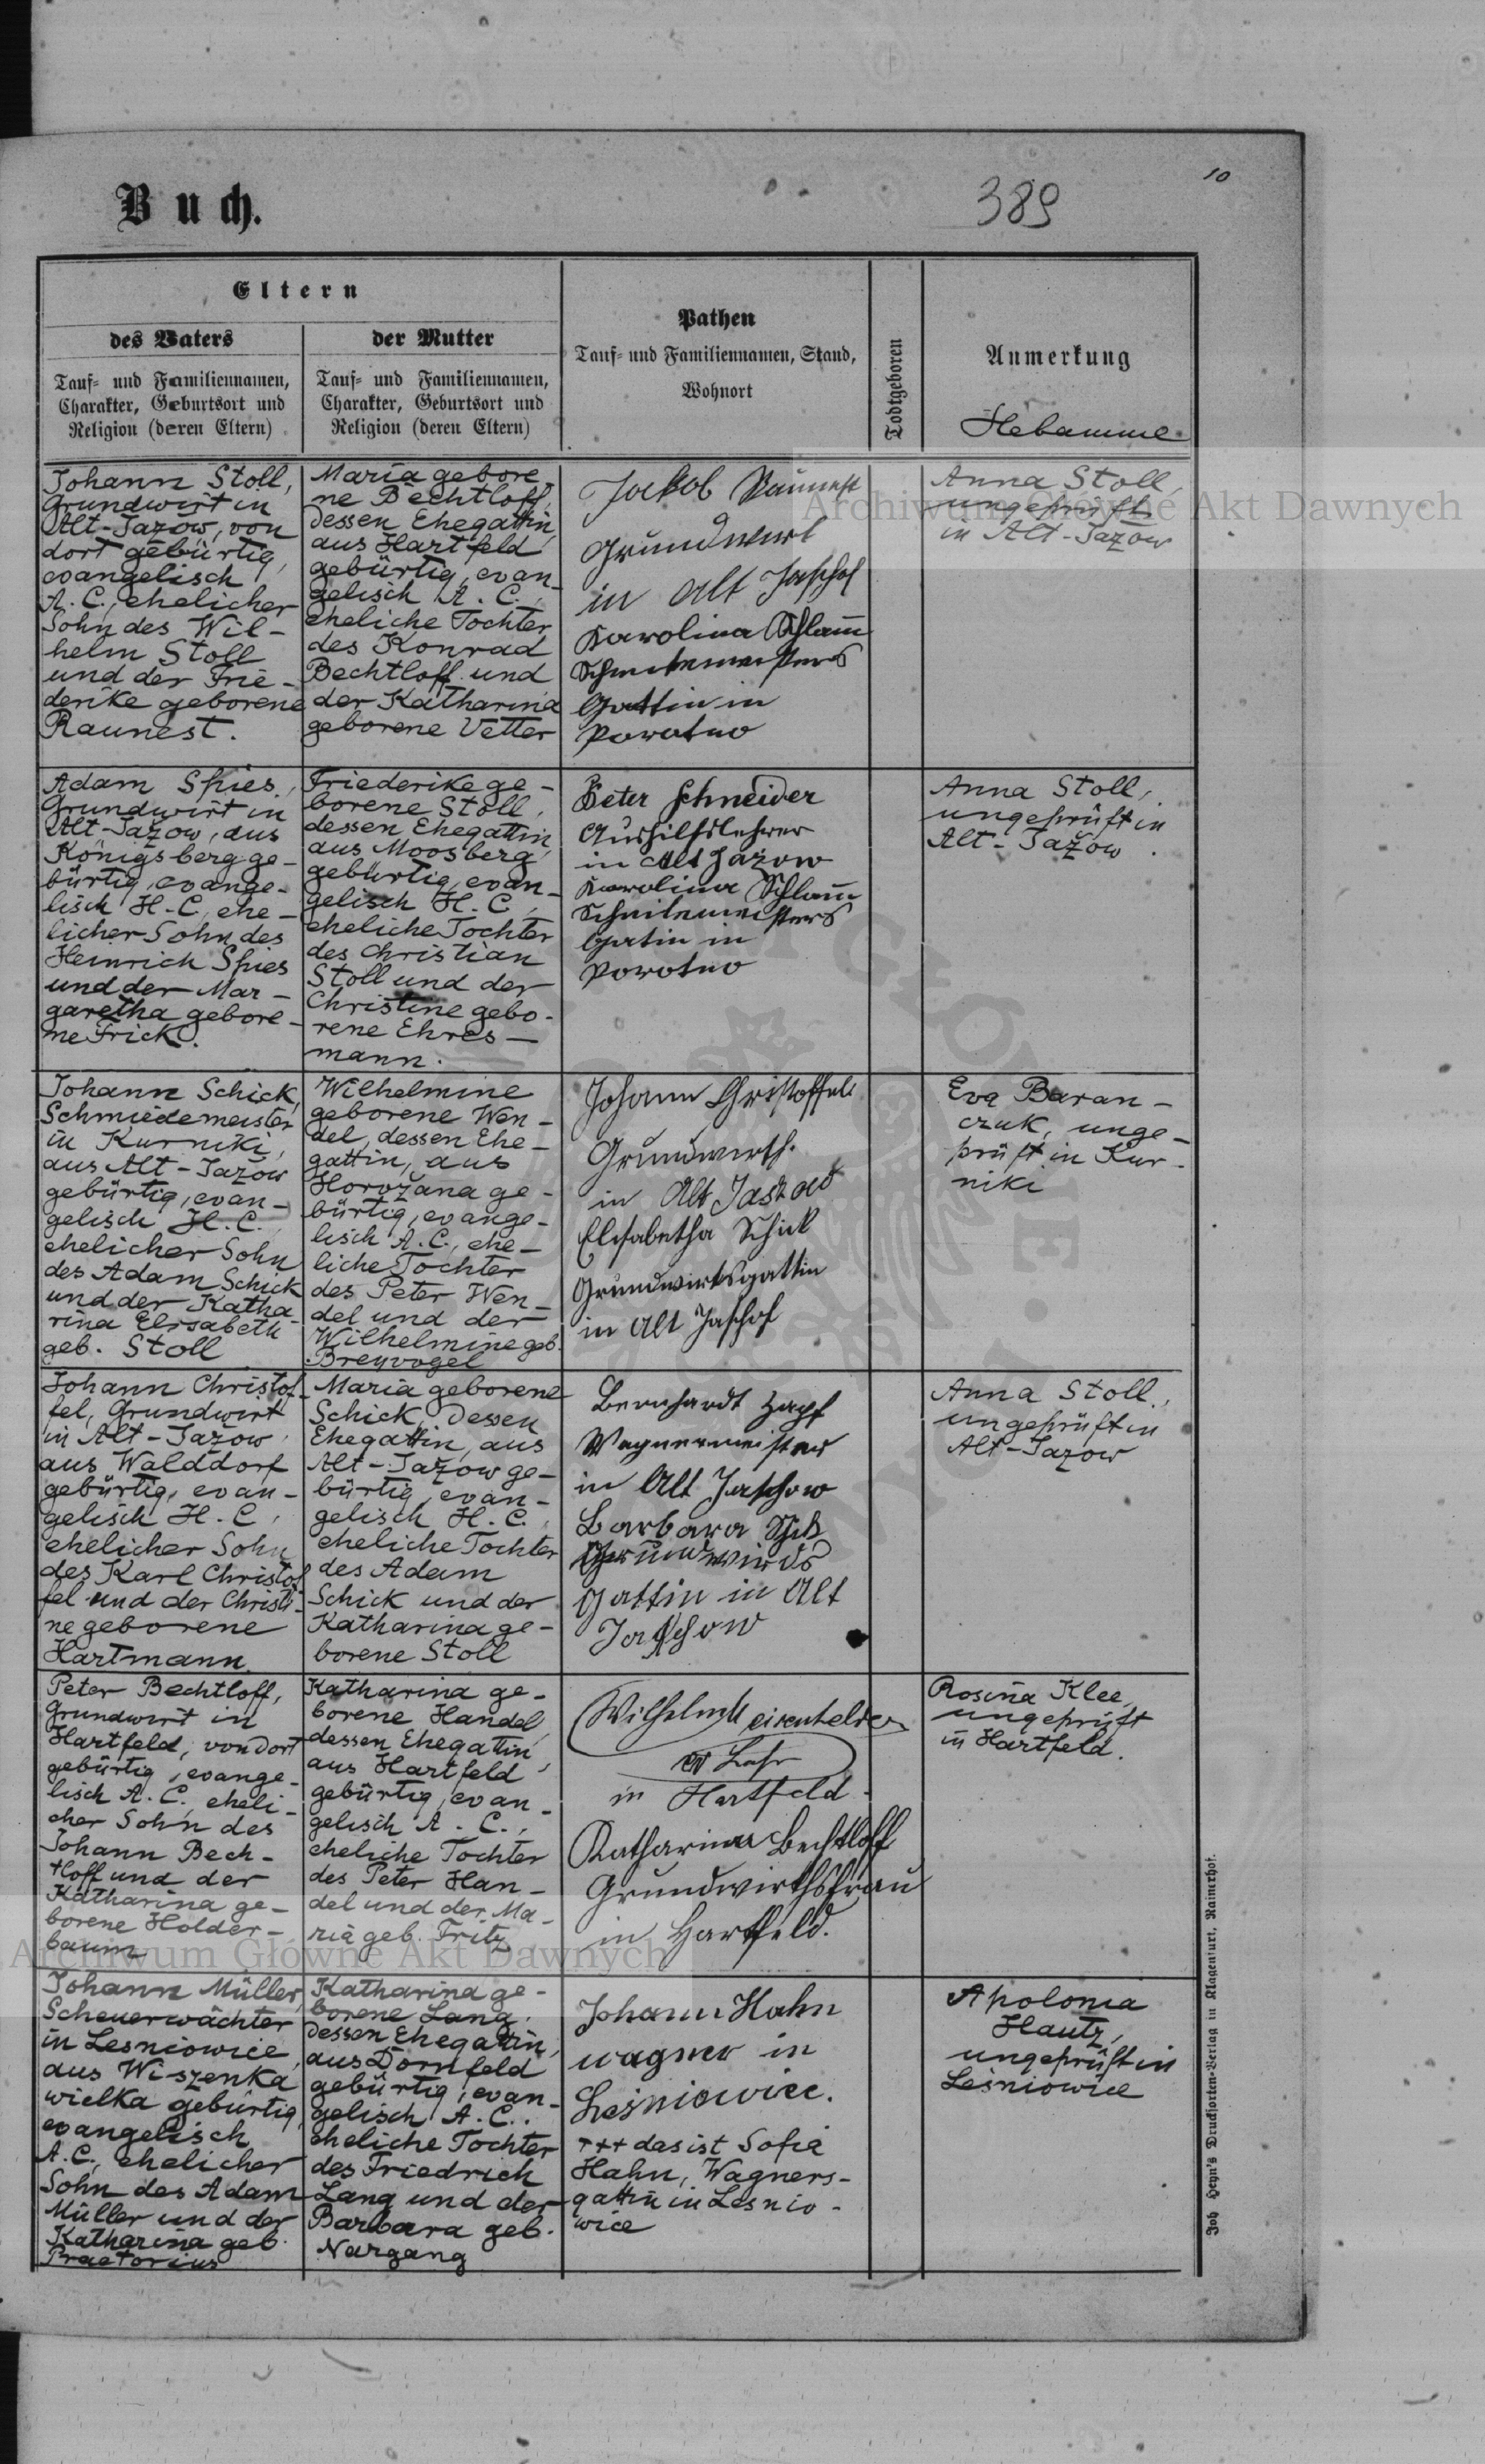 Buch.
389
10
Eltern
des Vaters
Tauf- und Familiennamen,
Charakter, Geburtsort und
Religion (deren Eltern)
der Mutter
Tauf- und Familiennamen,
Charakter, Geburtsort und
Religion (deren Eltern)
Pathen
Tauf- und Familiennamen, Stand,
Wohnort
Todtgeboren
Anmerkung
Hebamme
Johann Stoll,
Grundwirt in
Alt-Jazow, von
dort gebürtig,
evangelisch
A. C., ehelicher
Sohn des Wil-
helm Stoll
und der Frie-
derike geborene
Raunest.
Maria gebore
ne Bechtloff,
dessen Ehegattin,
aus Hartfeld
gebürtig, evan-
gelisch A. C.,
eheliche Tochter
des Konrad
Bechtloff und
der Katharina
geborene Vetter
Jakob
Grundwirt
in Alt Jaschof
Karolina Schlam̅
Gattin in
Porotno
Anna Stoll,
ungeprüft
in Alt-Jazow
Adam Spies,
Grundwirt in
Alt-Jażow, aus
Königsberg ge-
bürtig, evange-
lisch H.C, ehe-
licher Sohn des
Heinrich Spies
und der Mar-
garetha gebore-
ne Frick.
Friederike ge-
borene Stoll,
dessen Ehegattin,
aus Moosberg
gebürtig, evan-
gelisch H. C.,
eheliche Tochter
des Christian
Stoll und der
Christine gebo-
rene Ehres-
mann.
Peter Schneider
Aushilfslehrer
in Alt Jazow
Karolina Schlam̅
Schmitemeisters
Gatin in
Porotno
Anna Stoll,
ungeprüft in
Alt-Jażow.
Johann Schick,
Schmiedemeister
in Kurniki,
aus Alt-Jazow
gebürtig, evan-
gelisch H.C.,
ehelicher Sohn
des Adam Schick
und der Katha-
rina Elisabeth
geb. Stoll
Wilhelmine
geborene Wen-
del, dessen Ehe-
gattin, aus
Horożana ge-
bürtig, evange-
lisch A.C., ehe-
liche Tochter
des Peter Wen-
del und der
Wilhelmine geb.
Breyvogel
Johann Christoffel
Grundwirth.
in Alt
Elisabetha Schick
Grundwirtsgattin
in Alt Jaschof
Eva Baran-
czuk, unge-
prüft in Kur-
niki
Johann Christof-
fel, Grundwirt
in Alt-Jazow,
aus Walddorf
gebürtig, evan-
gelisch H.C,
ehelicher Sohn
des Karl Christof
fel und der Christi-
ne geborene
Hartmann.
Maria geborene
Schick, dessen
Ehegattin, aus
Alt-Jażow ge-
bürtig, evan-
gelisch H.C.,
eheliche Tochter
des Adam
Schick und der
Katharina ge-
borene Stoll
Bernhardt Zapf
Wagnermeister
in Alt Jaschow
Barbara Schik
Grundwirds
Gattin in Alt
Jaschow
Anna Stoll,
ungeprüft in
Alt-Jazow
Peter Bechtloff,
Grundwirt in
Hartfeld, von dort
gebürtig, evange-
lisch A.C. eheli-
cher Sohn des
Johann Bech-
tloff und der
Katharina ge-
borene Holder-
baum
Katharina ge-
borene Handel,
dessen Ehegattin,
aus Hartfeld
gebürtig, evan-
gelisch A. C.,
eheliche Tochter
des Peter Han-
del und der Ma-
ria geb. Fritz
Wilhelm
in Hartfeld
Katharina Bechtloff
Grundwirthsfrau
in Hartfeld.
Rosina Klee,
ungeprüft
in Hartfeld.
Johann Müller,
Scheuerwächter
in Lesniowice,
aus Wiszenka
wielka gebürtig,
evangelisch
A.C., ehelicher
Sohn des Adam
Müller und der
Katharina geb.
Praetorius
Katharina ge-
borene Lang,
dessen Ehegattin,
aus Dornfeld
gebürtig, evan-
gelisch A.C.,
eheliche Tochter
des Friedrich
Lang und der
Barbara geb.
Nargang
Johann Hahn
wagner in
Lesniowice.
+++ das ist Sofia
Hahn, Wagners-
gattin in Lesnio-
wice
Apolonia
Hautz,
ungeprüft in
Lesniowice
Joh. Heyn's Drucksorten-Verlag in Klagenfurt, Rainerhof.
Archiwum Główne Akt Dawnych
Archiwum Główne Akt Dawnych